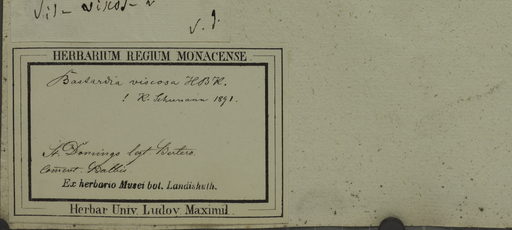 v. s.
HERBARIUM REGIUM MONACENSE
Bastardia viscosa HBK.
! K. Schumann 1891.
St. Domingo legt. Bertero.
comunt. Balbis
Ex herbario Musei bot. Landishuth.
Herbar Univ. Ludov. Maximil.